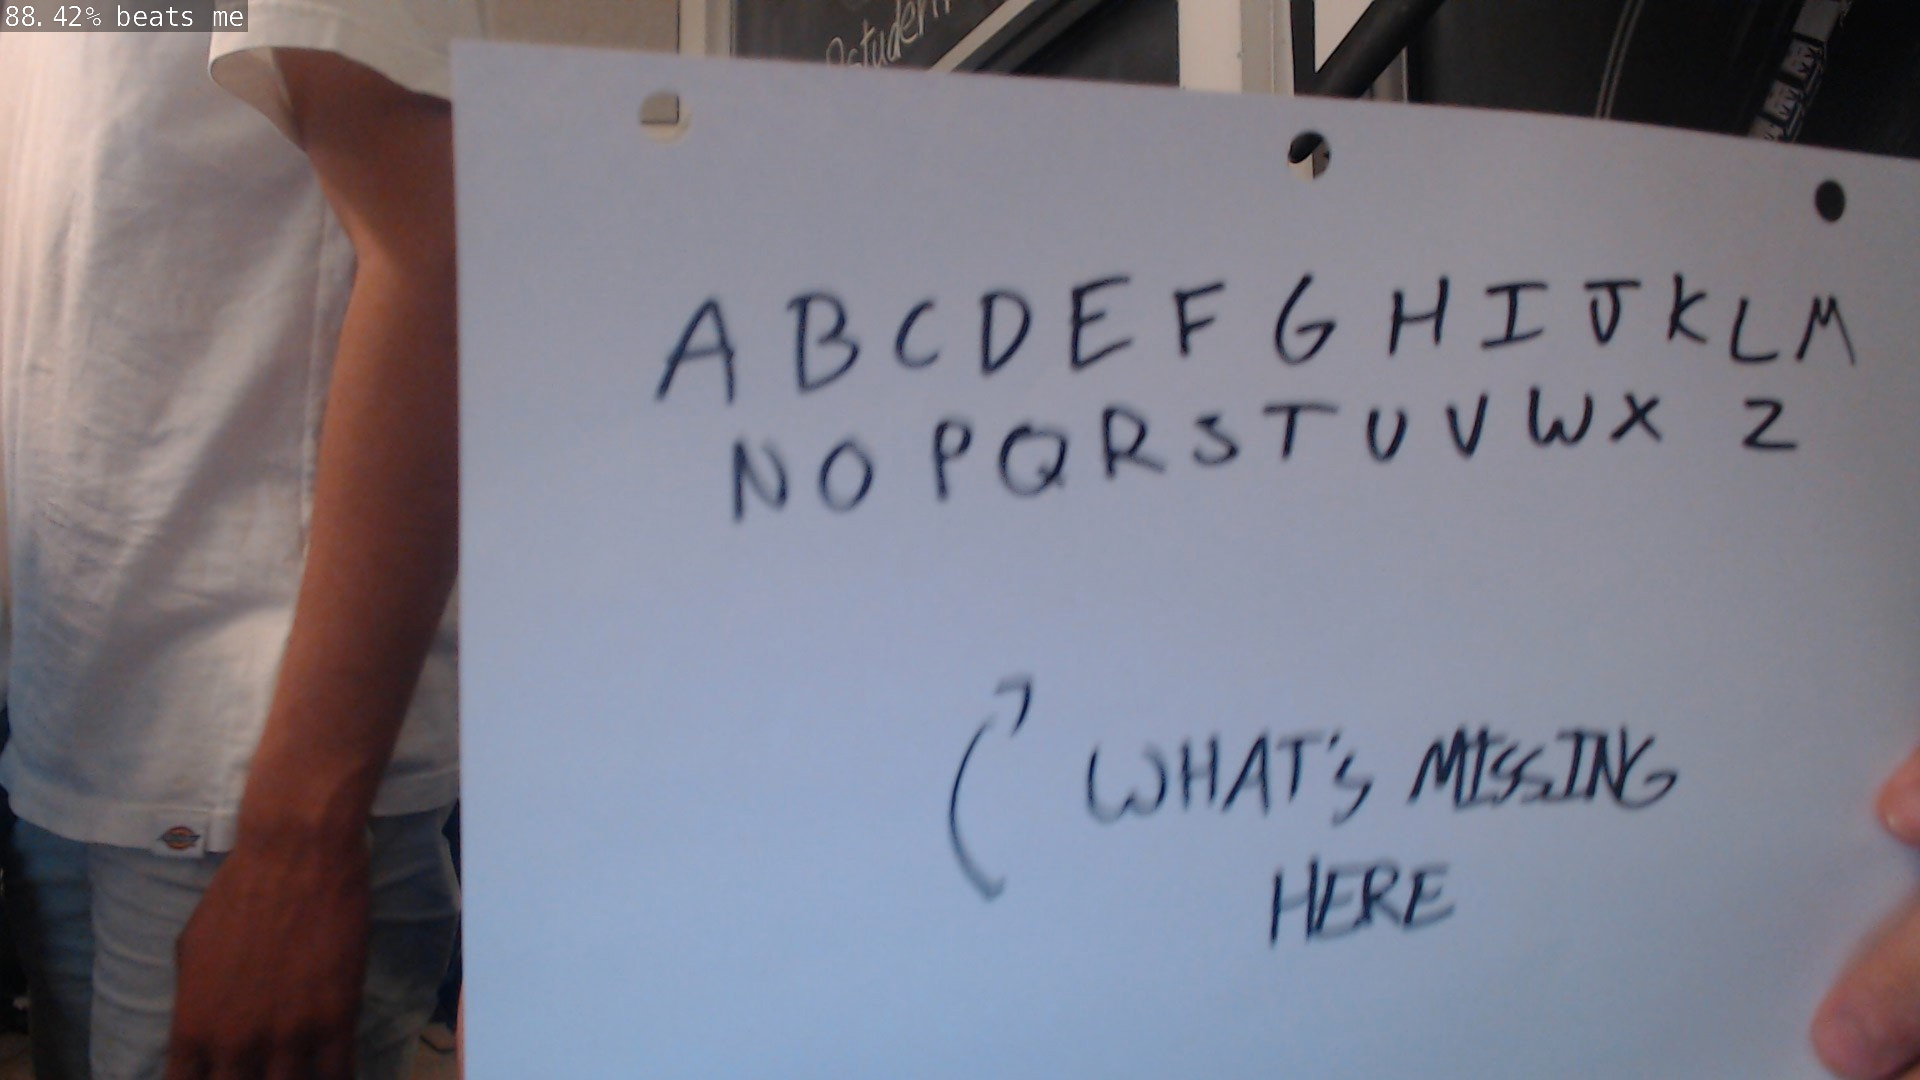 88.42% beats me
student
A B C D E F G H I J K L M
N O P Q R S T U V W X Z
WHAT'S MISSING
HERE